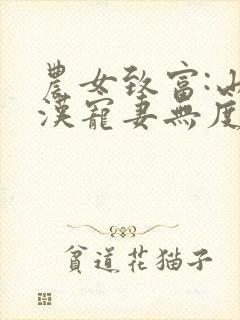 農女致富:山
漢寵妻無度
貧道花猫子